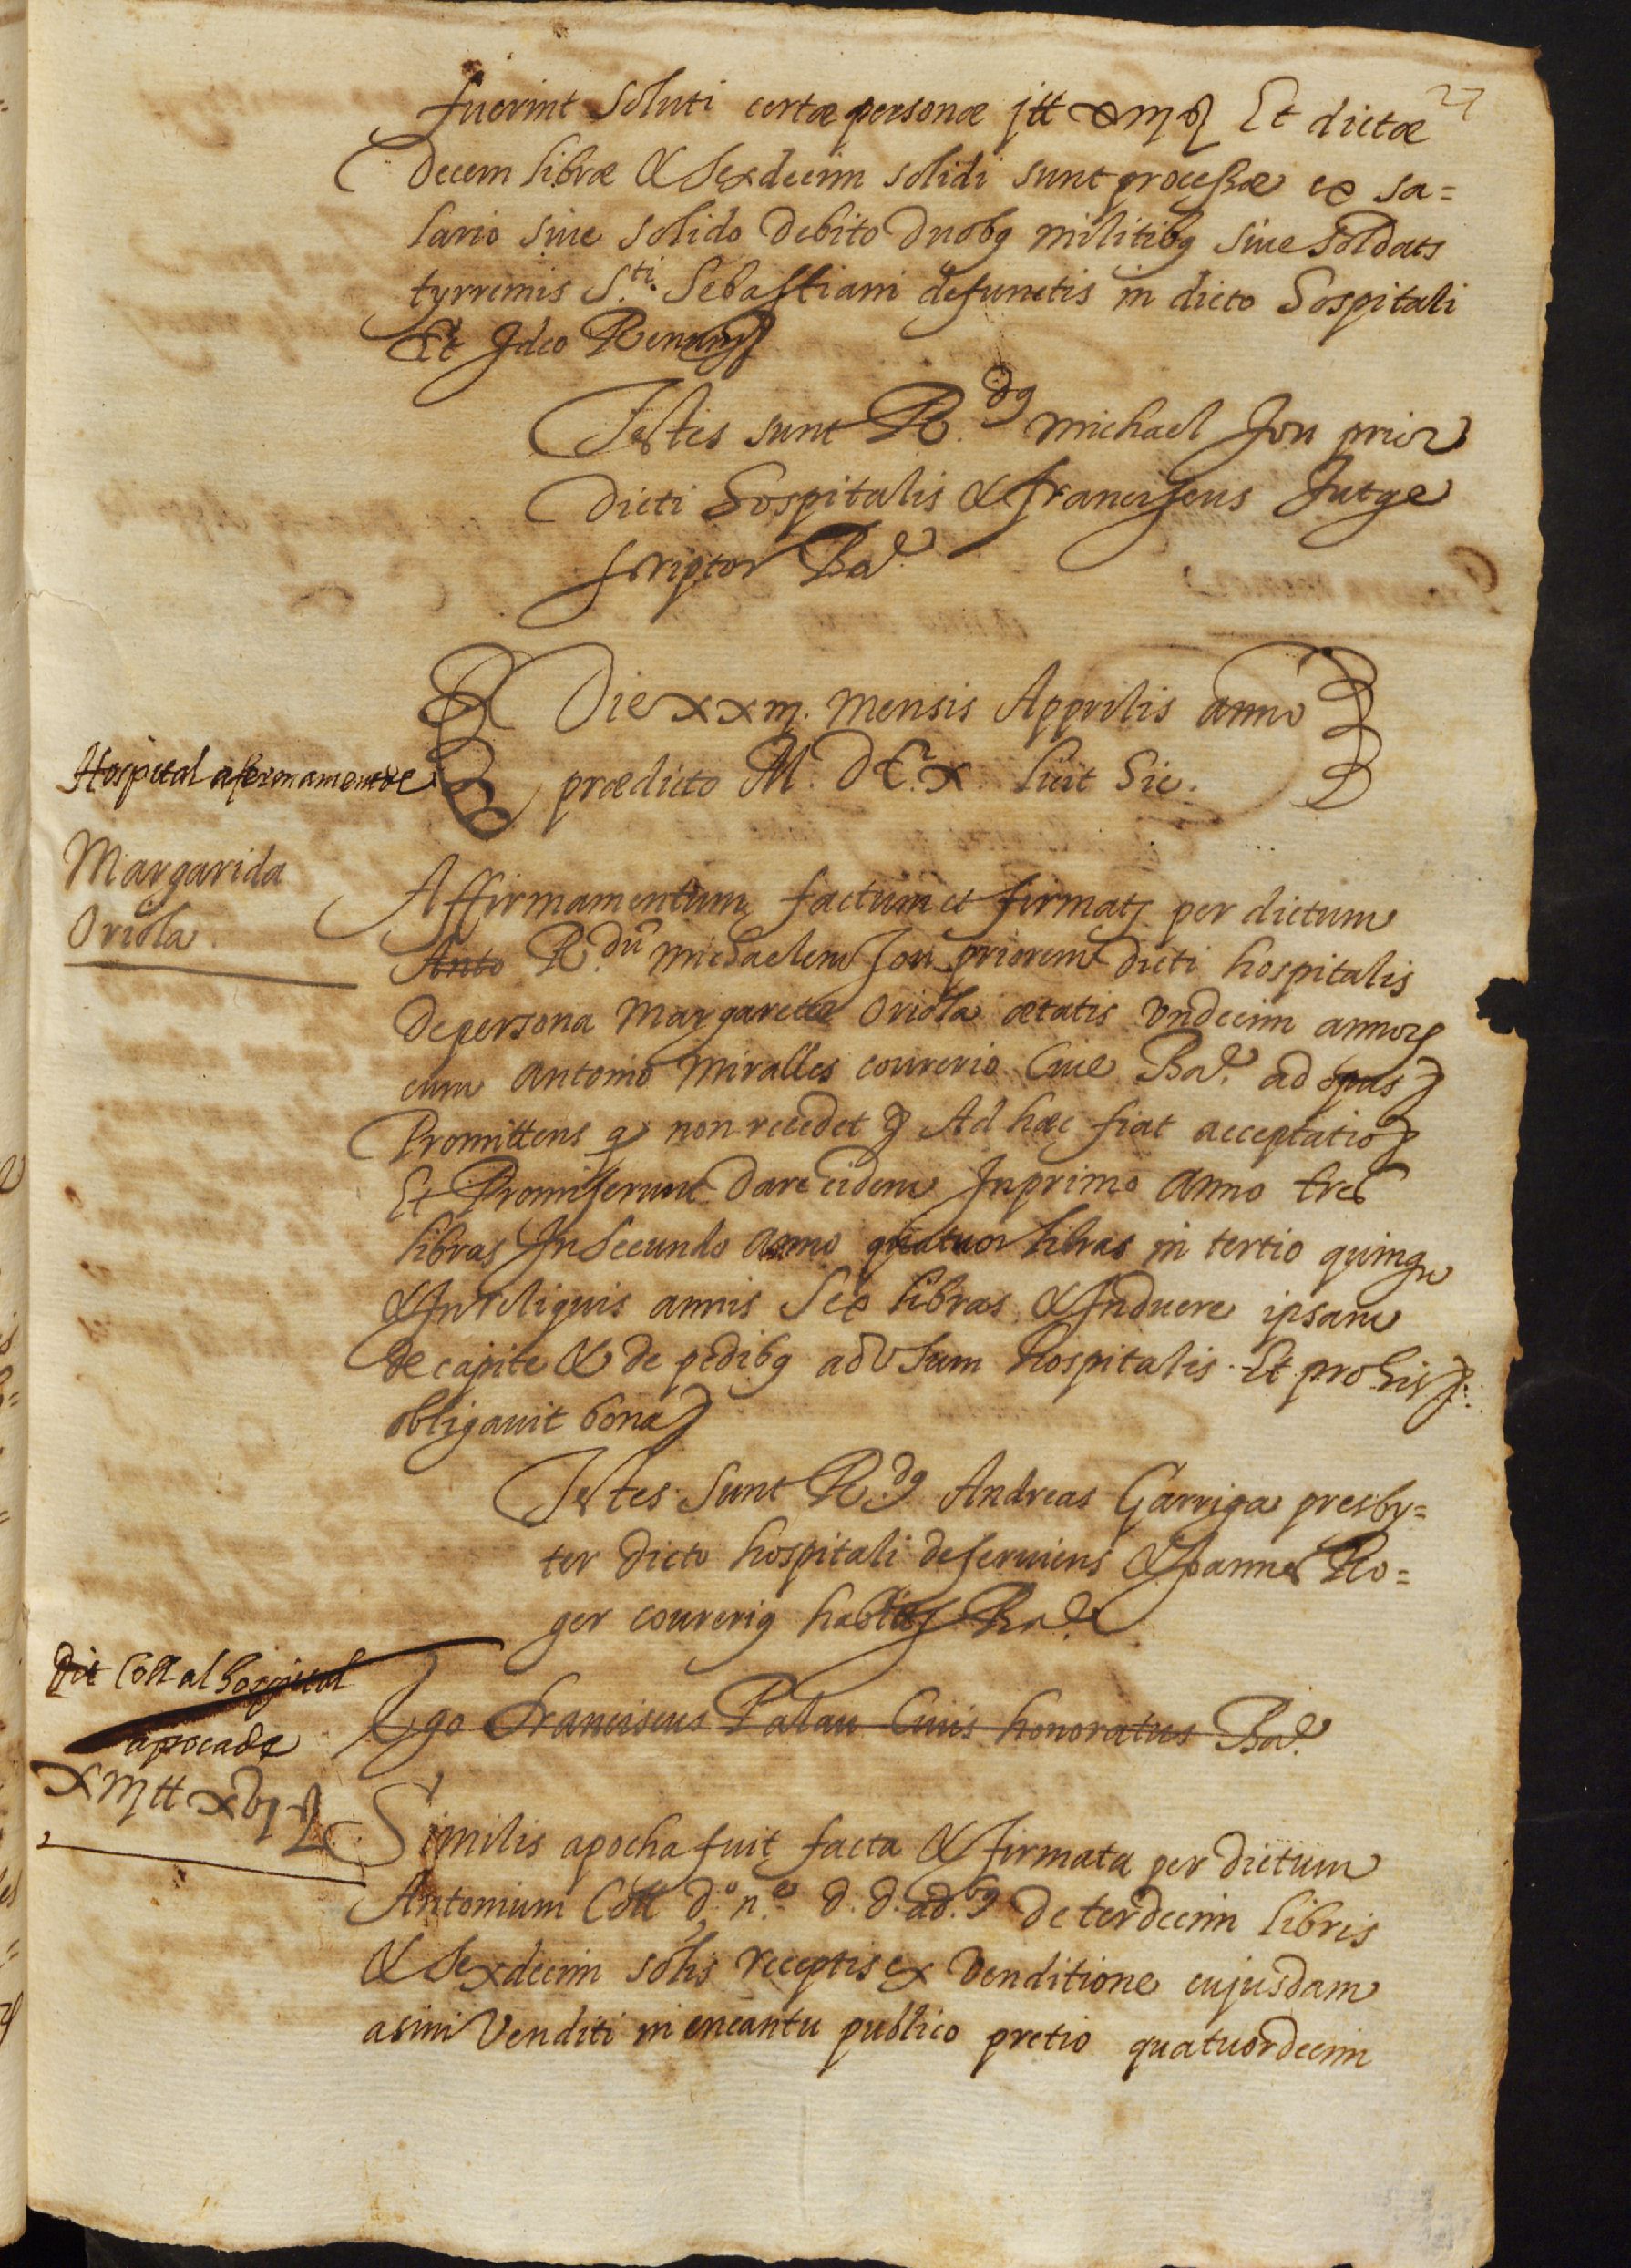 27
fuerint soluti certæ personæ j ₶ xiiij ß Et dictæ
decem libræ & sexdecim solidi sunt processæ ex sa=
lario sive solido debito duobꝫ militibꝫ sive soldats
tyrremis S.ti Sebastiani defunctis in dicto Hospitali
Et Ideo Renun
Testes sunt R.dꝰ Michael Jou prior
dicti Hospitalis & Franciscus Jutge
scriptor Ba.e
Die xxiij. mensis Apprilis anno
prædicto M. D C. x. fuit Sic.
Hospital afermament de
Margarida
Oriola
Affirmamentum factum et firmatꝫ per dictum
Anto R.dū Michaelem Jou priorem dicti hospitalis
de persona Margaretæ Oriola ætatis undecim annoꝝ
cum Antonio Miralles courerio Cive Ba.e ad opus
Promittens ꝙ non recedet Ad hæc fiat acceptatio
Et Promiserunt dare eidem In primo anno tres
libras In secundo anno quatuor libras in tertio quinqꝫ
& In reliquis annis sex libras & Induere ipsam
de capite & de pedibꝫ ad usum Hospitalis. Et pro his
obligavit bona
Testes sunt R.dꝰ Andreas Garriga presby=
ter dicto hospitali deserviens & Joannes Ro=
ger coureriꝰ habits Ba.e
Ego Franciscus Palau Civis honoratus Ba.e
Dit Coll al hospital
apoca de
xiij ₶ xvj ß
Similis apocha fuit facta & firmata per dictum
Antonium Coll d.o n.e d. d. ad.bꝫ de terdecim libris
& sexdecim solis receptis ex venditione cujusdam
asini venditi in encantu publico pretio quatuordecim